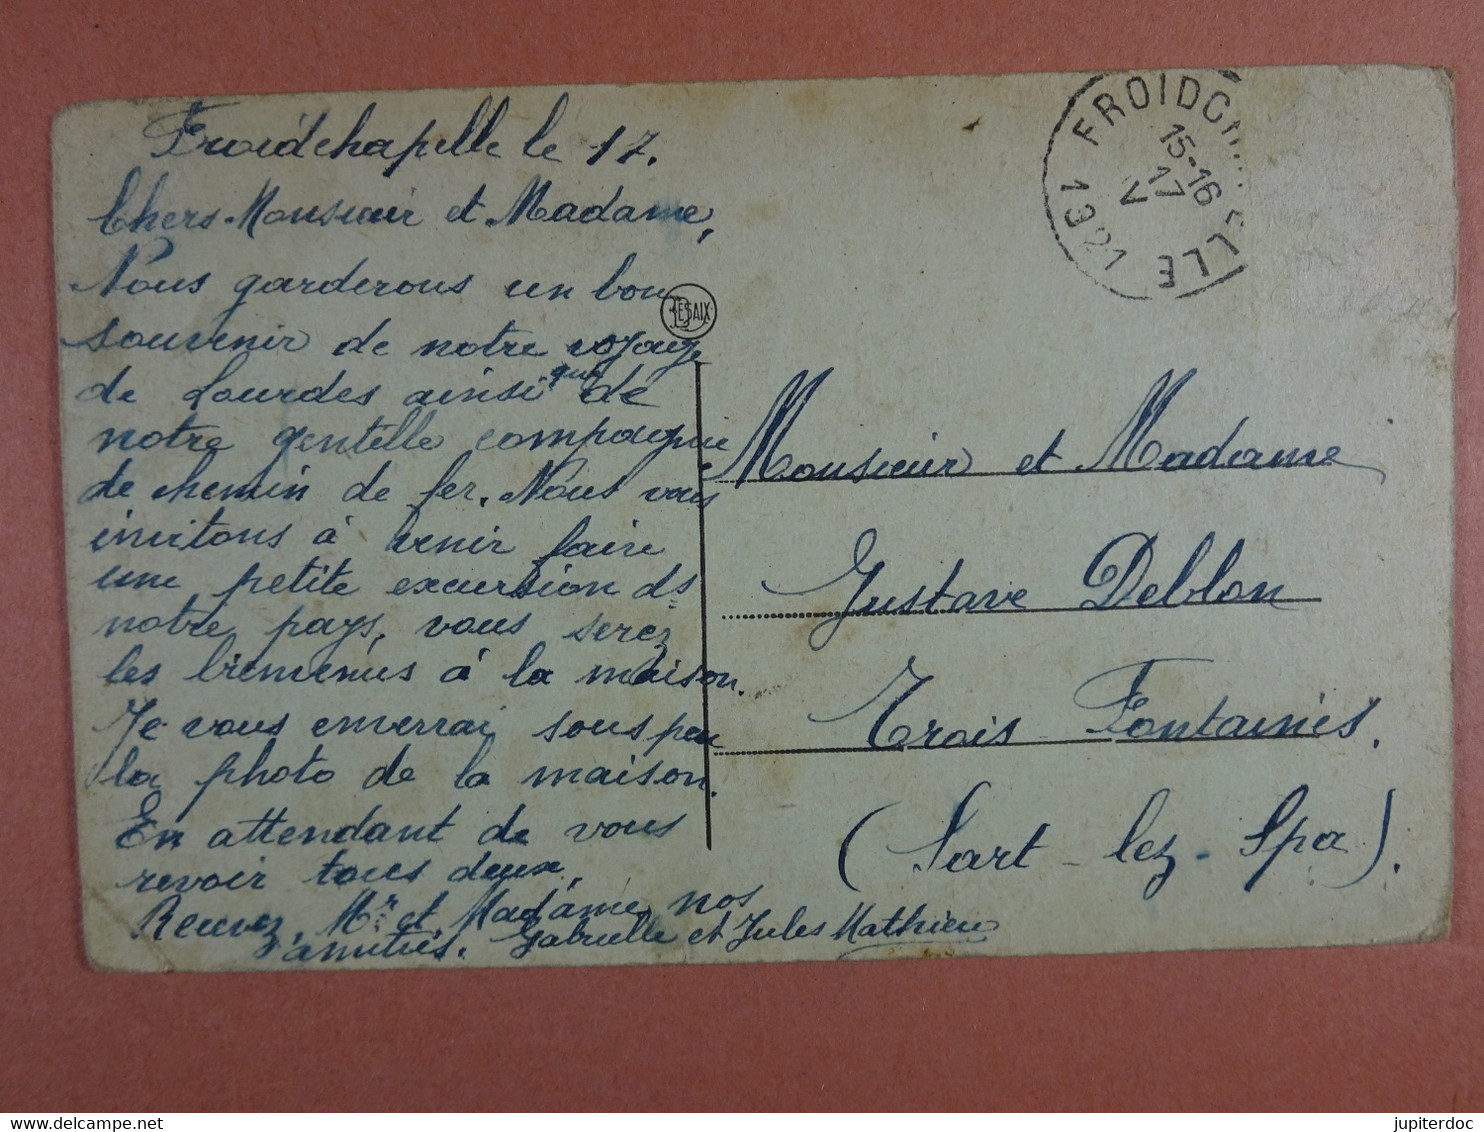 Froidchapelle le 17.
Chers Monsieur et Madame,
Nous garderons un bon
souvenir de notre voyage
de Lourdes ainsi que de
notre gentille compagnie
de chemin de fer. Nous vous
invitons à venir faire
une petite excursion ds
notre pays, vous serez
les bienvenus à la maison.
Je vous enverrai sous peu
la photo de la maison.
En attendant de vous
revoir tous deux,
Recevez, Mr et Madame, nos
amitiés. Gabrielle et Jules Mathieu
DESAIX
FROIDCH ELLE
15-16
17
V
1921
Monsieur et Madame
Gustave Deblon
Trois Fontaines.
(Sart-lez-Spa).
jupiterdoc